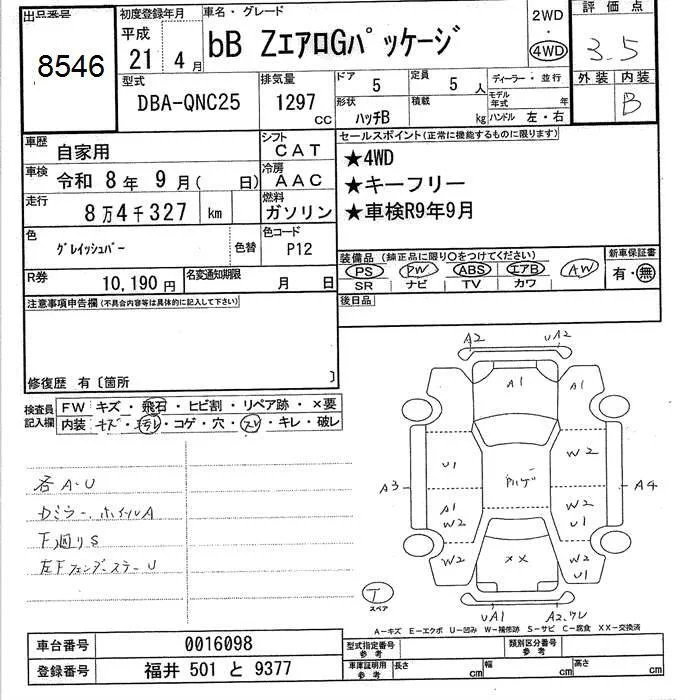 出品番号
8546
初度登録年月
平成
21年 4月
車名・グレード
bB ZエアロGパッケージ
2WD
・
4WD
評価点
3.5
型式
DBA-QNC25
排気量
1297
cc
ドア
5
定員
5人
形状
ハッチB
積載
kg
ディーラー・並行
モデル年式
年
ハンドル 左・右
外装 内装
B
車歴
自家用
シフト
CAT
車検
令和 8年 9月( 日)
冷房
AAC
走行
8万4千327 km
燃料
ガソリン
色
グレイッシュパー
色替
色コード
P12
R券
10,190 円
名変通知期限
月 日
セールスポイント(正常に機能するものに限ります)
★4WD
★キーフリー
★車検R9年9月
装備品(純正品に限り○をつけてください)
PS PW ABS エアB AW
SR ナビ TV カワ
新車保証書
有・無
後日品
注意事項申告欄(不具合内容等は具体的に記入して下さい)
修復歴 有〔箇所 〕
検査員
記入欄
FW キズ・飛石・ヒビ割・リペア跡・×要
内装 キズ・汚レ・コゲ・穴・スレ・キレ・破レ
各A・U
Dミラー、ホイルA
下廻りS
左Fフェンダーステー U
A2
UA2
A1
A1
U1
W2
A3
A4
A1
W2
W2
U1
W2
××
W2
U1
T
スペア
UA1
A2、ワレ
A-キズ E-エクボ U-凹み W-補修跡 S-サビ C-腐食 XX-交換済
車台番号
0016098
登録番号
福井 501 と 9377
型式指定番号
参考
類別区分番号
参考
車庫証明用
参考
長さ
cm
幅
cm
高さ
cm